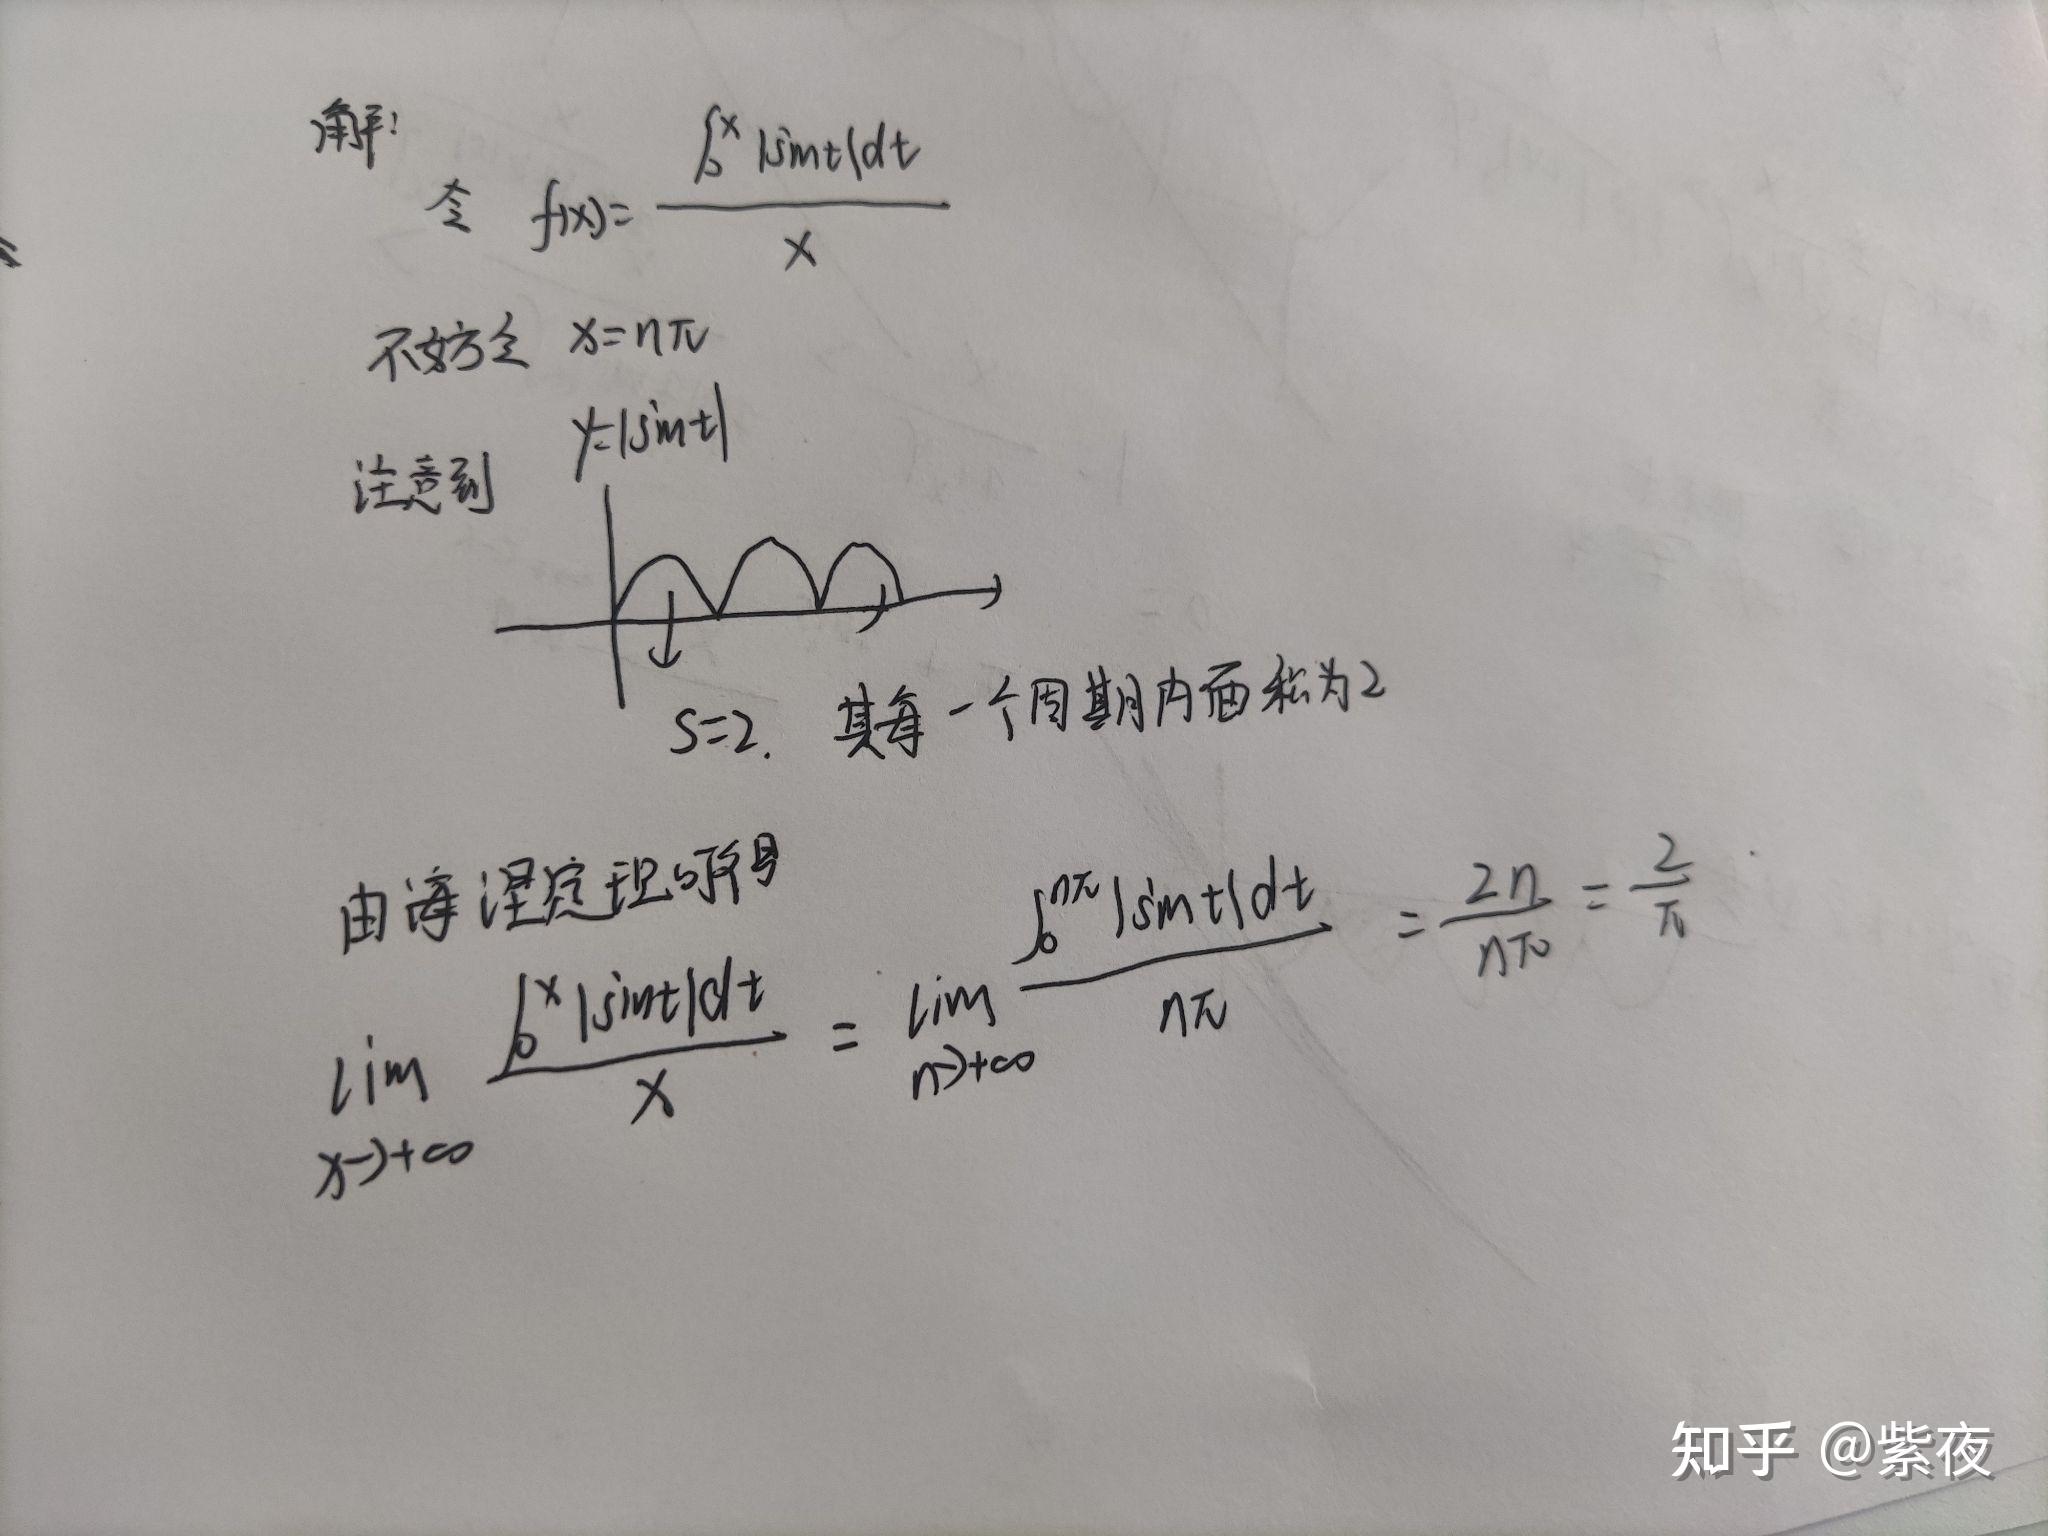 解:
令 f(x)= ∫₀ˣ |sint|dt / x
不妨令 x=nπ
y=|sint|
注意到
S=2. 其每一个周期内面积为2
由海涅定理可得
lim x→+∞ ∫₀ˣ |sint|dt / x = lim n→+∞ ∫₀ⁿᵖⁱ |sint|dt / nπ = 2n / nπ = 2 / π
知乎 @紫夜